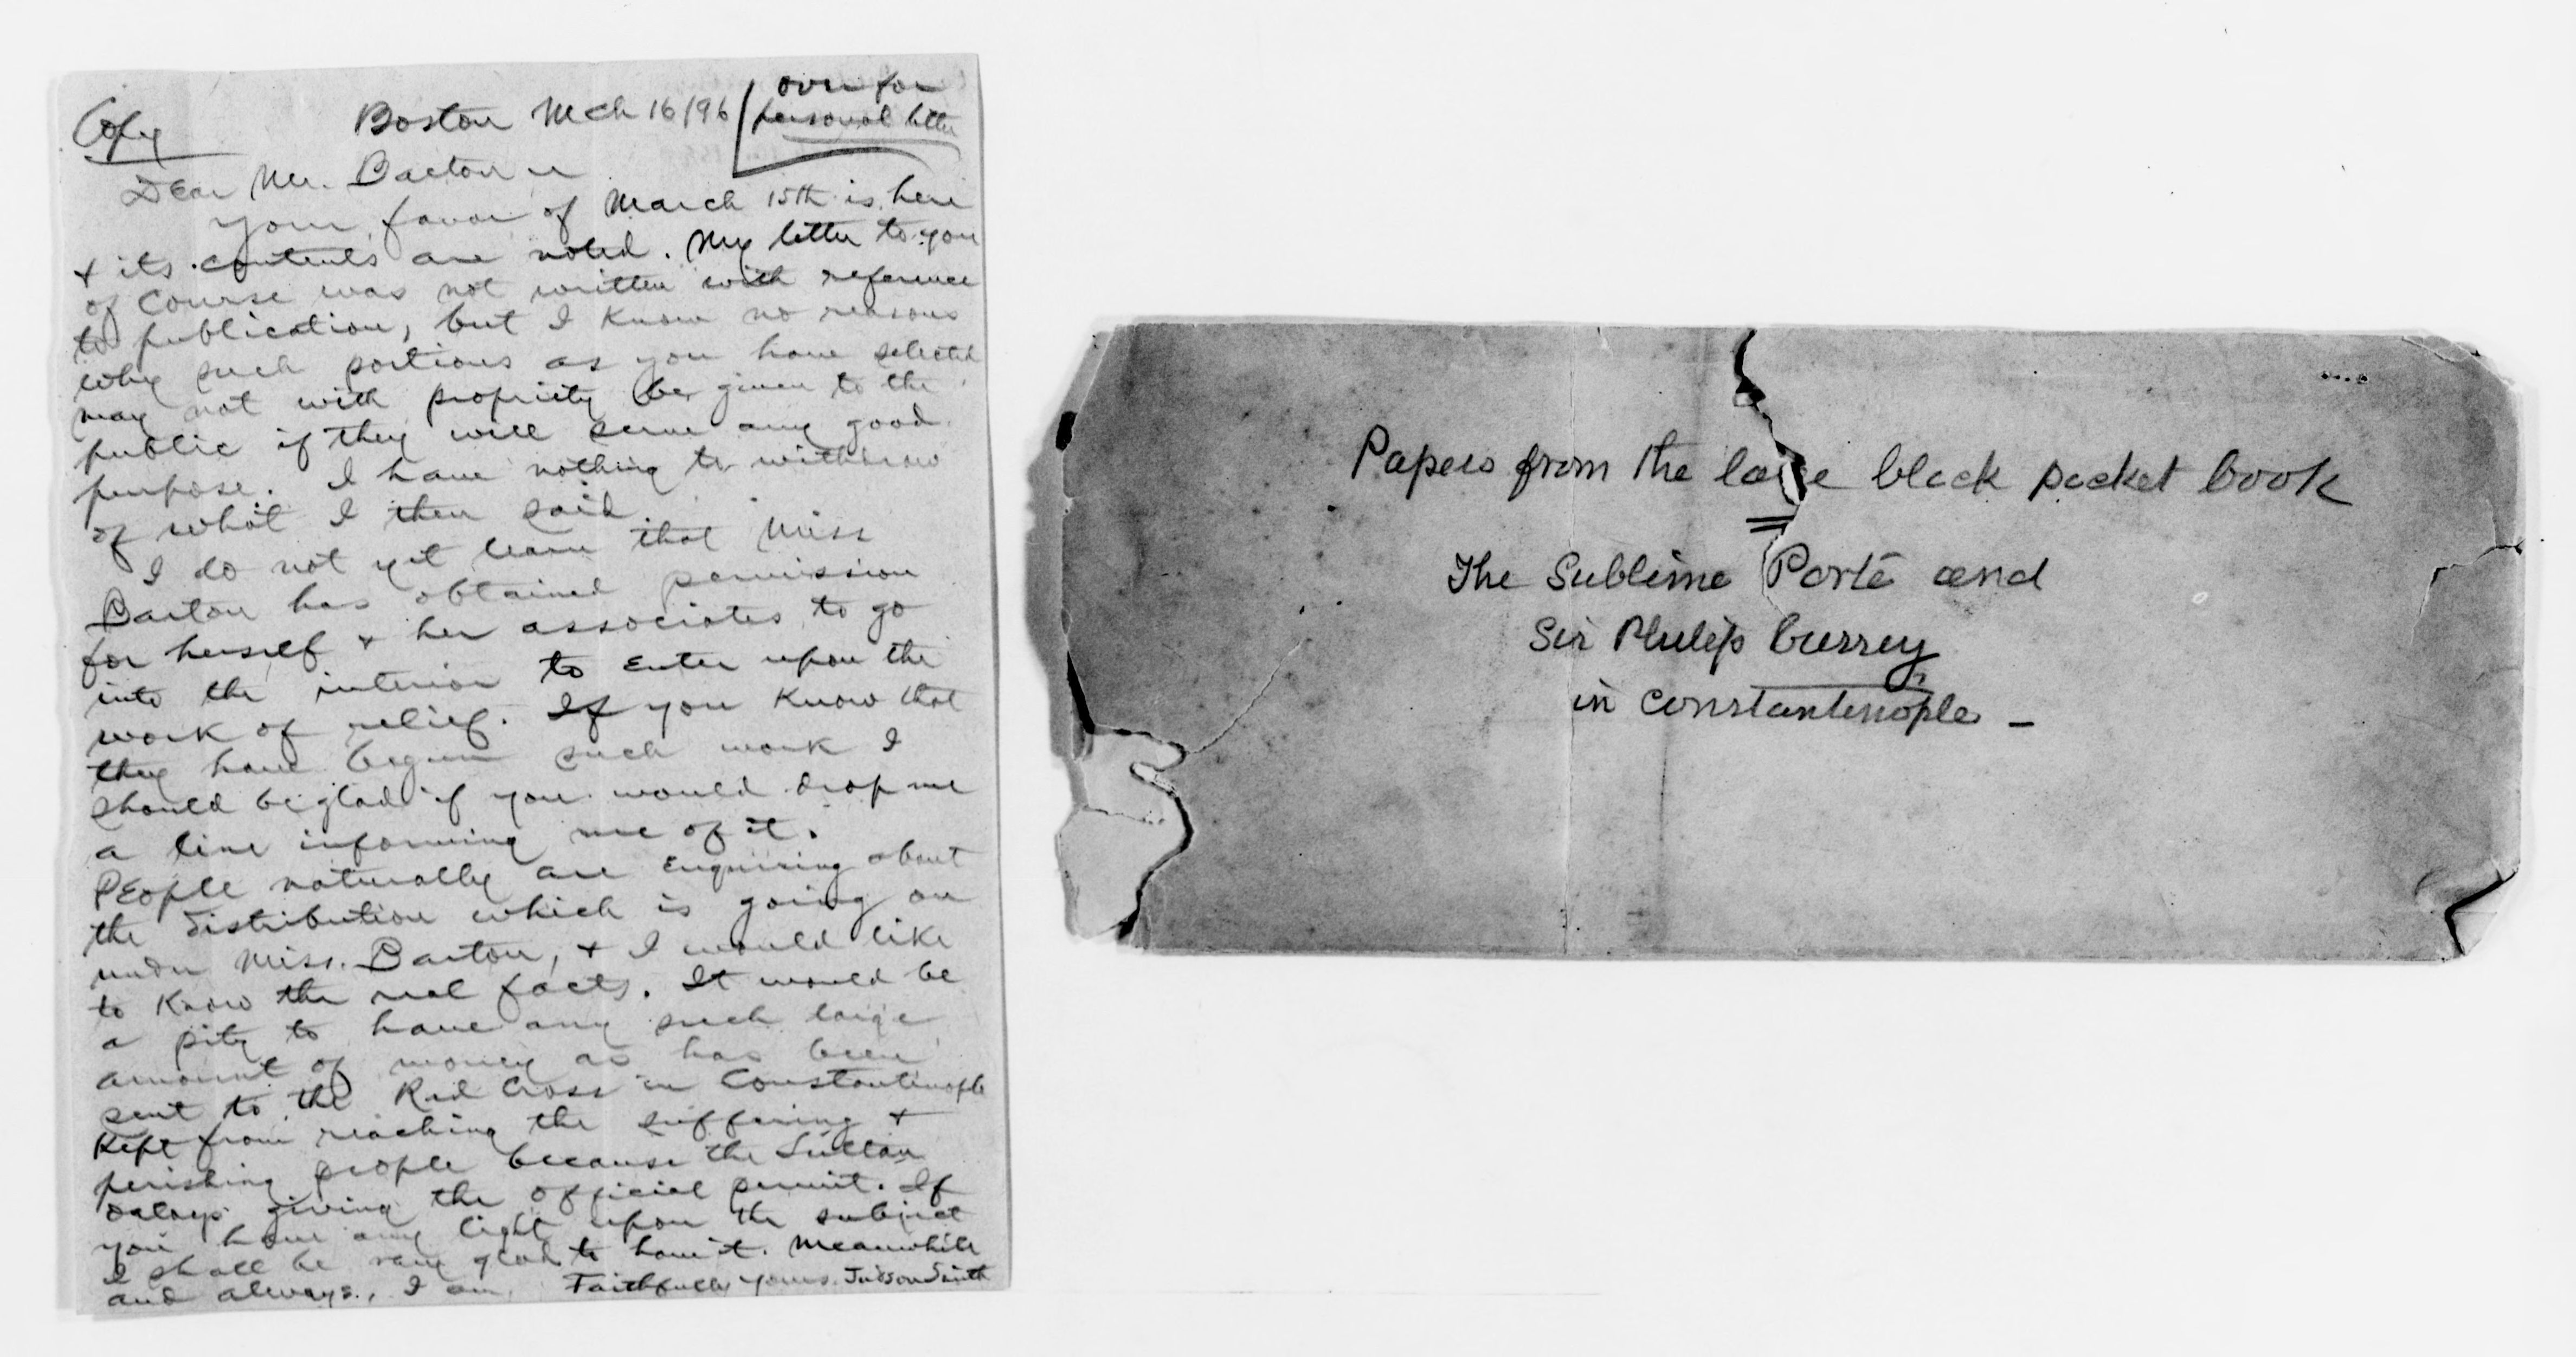 Copy
Boston Mch 16/96
over for
personal letter
Dear Mr. Barton
Your favor of March 15th is here
& its contents are noted. My letter to you
of course was not written with reference
to publication, but I know no reasons
why such portions as you have selected
may not with propriety be given to the
public if they will serve any good
purpose. I have nothing to withdraw
of what I then said.
I do not yet learn that Miss
Barton has obtained permission
for herself & her associates to go
into the interior to enter upon the
work of relief. If you know that
they have begun such work I
should be glad if you would drop me
a line informing me of it.
People naturally are enquiring about
the distribution which is going on
under Miss. Barton, & I would like
to know the real facts. It would be
a pity to have any such large
amount of money as has been
sent to the Red Cross in Constantinople
kept from reaching the suffering &
perishing people because the Sultan
delays giving the official permit. If
you have any light upon the subject
I shall be very glad to have it. Meanwhile
and always, I am, Faithfully yours. Judson Smith
Papers from the large black pocket book
The Sublime Porte and
Sir Philip Currey,
in Constantinople –